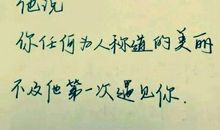 他说
你任何为人称道的美丽
不及他第一次遇见你.